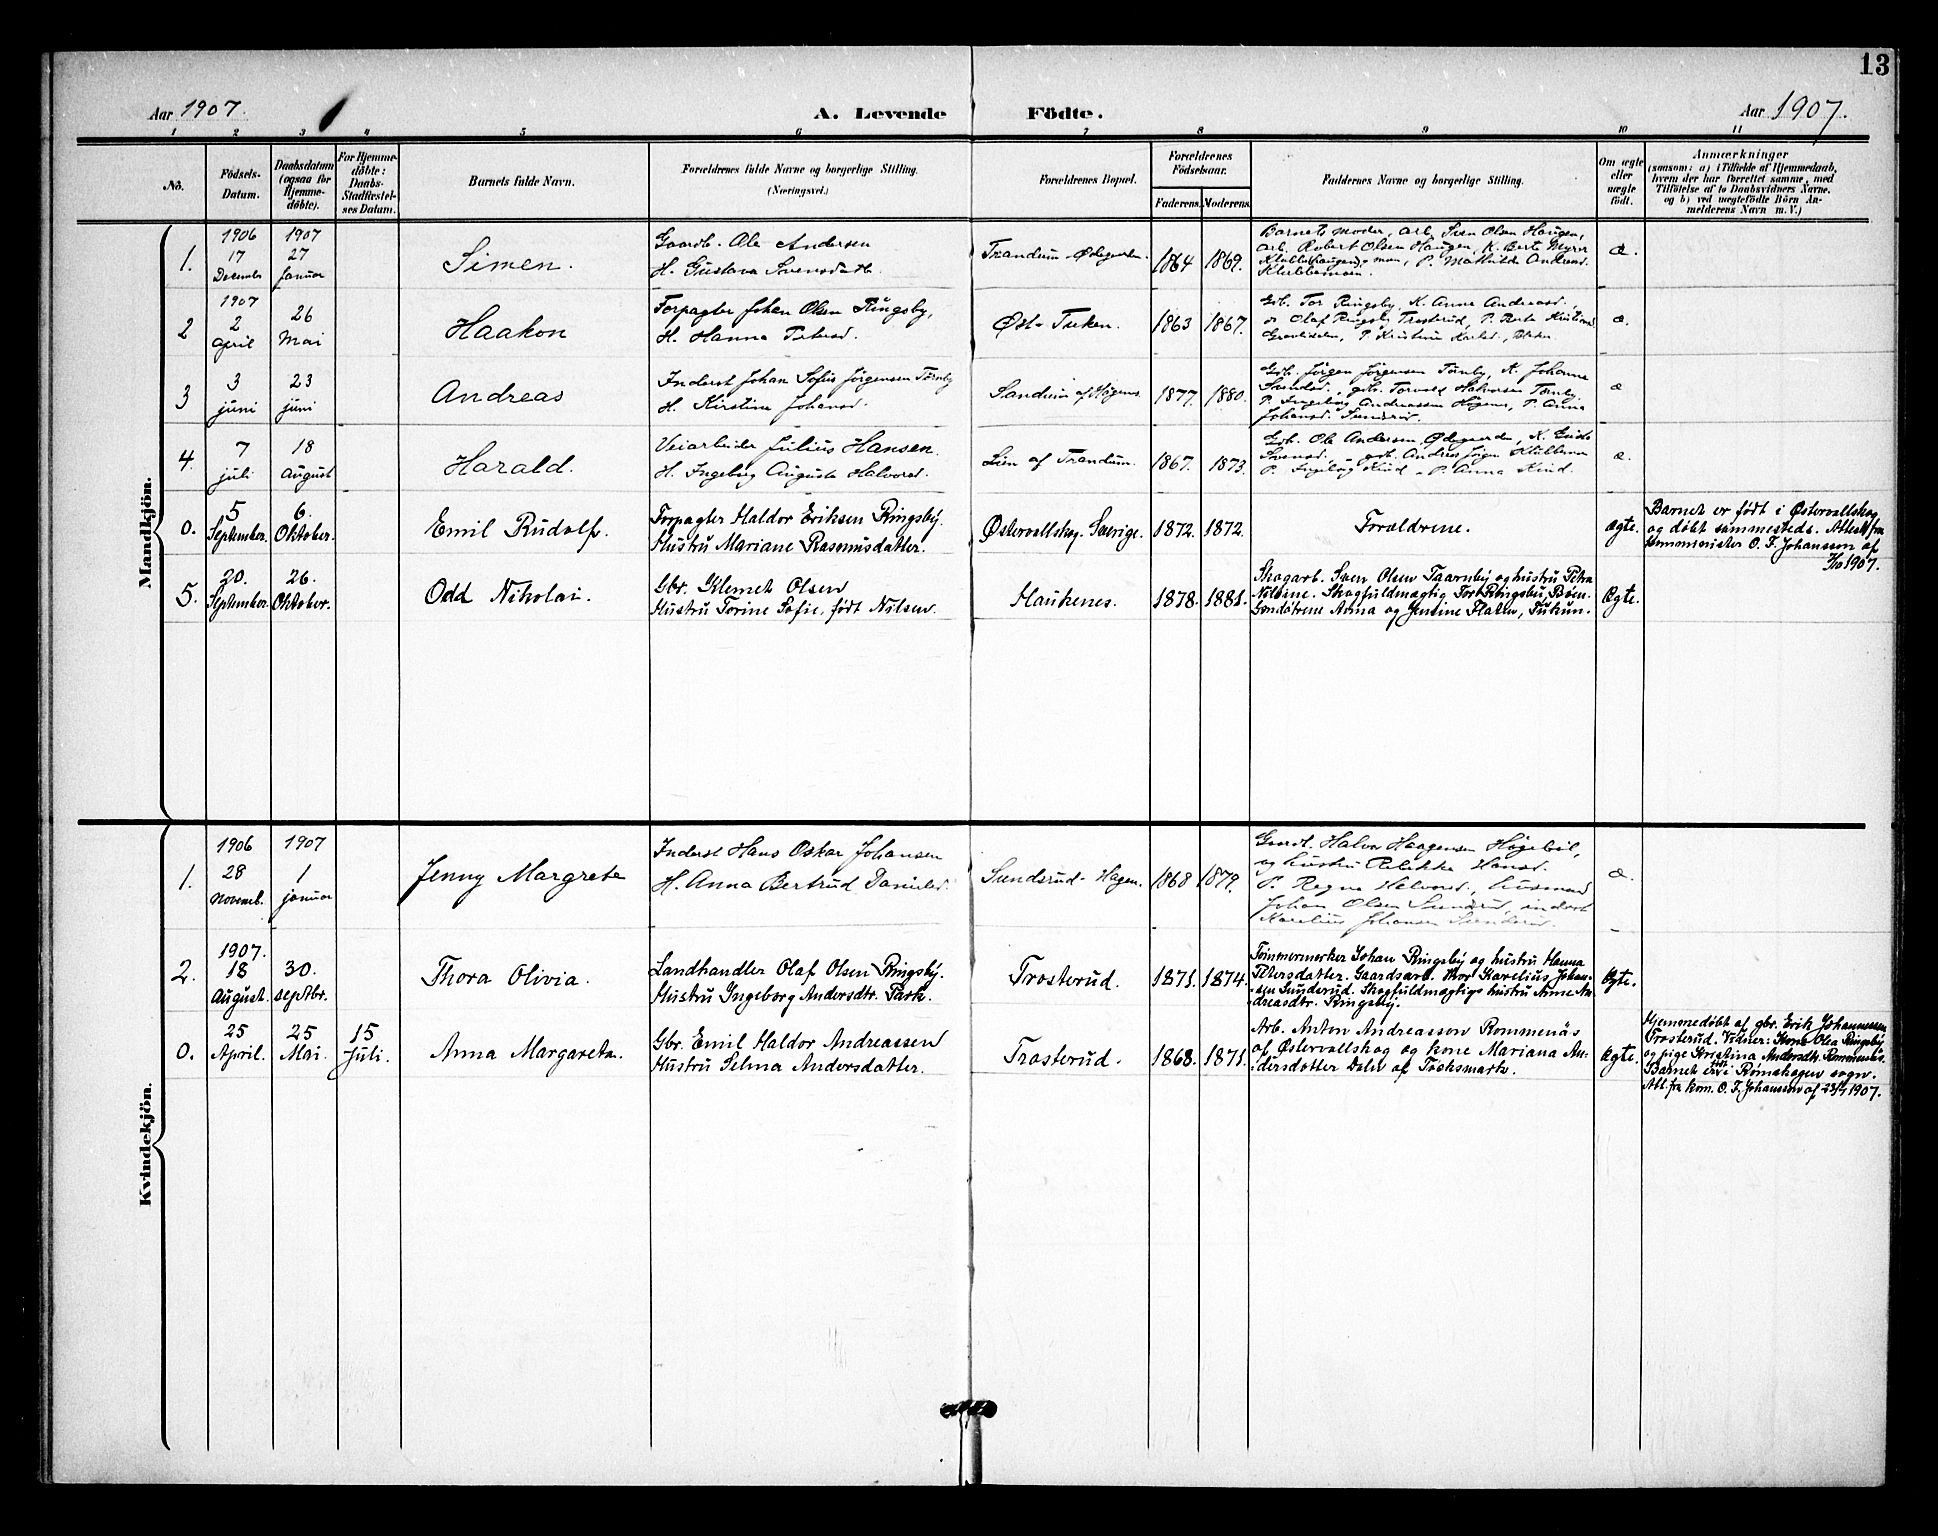 13
Aar 1907.
A. Levende Födte.
Aar 1907.
1 2 3 4 5 6 7 8 9 10 11
No.
Födsels-
Datum.
Daabsdatum
(ogsaa for
Hjemme-
döbte).
For Hjemme-
döbte:
Daabs-
Stadfæstel-
ses Datum.
Barnets fulde Navn.
Forældrenes fulde Navne og borgerlige Stilling.
(Næringsvei.)
Forældrenes Bopæl.
Forældrenes
Födselsaar.
Faderens. Moderens.
Faddernes Navne og borgerlige Stilling.
Om ægte
eller
uægte
födt.
Anmærkninger
(saasom: a) i Tilfælde af Hjemmedaab,
hvem der har forrettet samme, med
Tilföielse af to Daabsvidners Navne,
og b) ved uægtefödte Börn An-
melderens Navn m. V.)
Mandkjön.
1.
1906
17
Decembr
1907
27
Januar
Simen.
Gaardb. Ole Andersen
H. Gustava Svensdatt.
Trandum-Ødegaarden.
1864 1869.
Barnets moder, arb. Sven Olsen Haugen,
arb. Robert Olsen Haugen, K. Berte Myrer
P. Mathilde Andreasd.
Klubbemoen.
æ.
2
1907
2
april
26
Mai
Haakon
Forpagter Johan Olsen Ringsby,
H. Hanna
Øst-Tuken.
1863 1867.
Gdb. Tor Ringsby, K. Anne Andreasd.,
Olaf Ringsby Trosterud, P. Berte Kristine
P. Kristine
æ.
3
3
juni
23
juni
Andreas
Inderst Johan Sofus Jörgensen Törnby
H. Kirstine Johansd.
Sandum af Högenes
1877. 1880.
Gdb. Jörgen Jörgensen Törnby, K. Johanne
Torvald Halvorsen Törnby,
P. Ingeborg Andreassen Högenes, P. Anna
Johansd. Sundsrud.
æ
4.
7
juli
18
August
Harald.
Veiarbeider Julius Hansen.
H. Ingeborg Auguste Halvorsd.
Lien af Trandum.
1867. 1873.
Gdb. Ole Andersen Ødegaarden, K.
P. Ingeborg Kind - P. Anna Kind.
æ.
0.
5
September.
6.
Oktober.
Emil Rudolf.
Forpagter Haldor Eriksen Ringsby.
Hustru Mariane Rasmusdatter.
Østervallskog. Sverige.
1872. 1872.
Forældrene.
ægte.
Barnet er født i Østervallskog
og döbt sammesteds. Attest fra
komminister O. F. Johansson af
7/10 1907.
5.
20.
September.
26.
Oktober.
Odd Nikolai.
Gbr. Klemet Olsen
Hustru Torine Sofie, født Nilsen.
Haukenes.
1878. 1881.
Skogarb. Sven Olsen Taarnby og hustru Petra
Nilsine. Skogfuldmægtig Tor Ringsby, Bøen-
Gaardøtrene Anna og Jensine Flaten, Tukun.
Ægte.
Kvindekjön.
1.
1906
28
Novemb.
1907
1
januar
Jenny Margrete
Inderst Hans Oskar Johansen
H. Anna Bertrud Danielsd.
Sundsrud-Hagen.
1868 1879.
Gaardb. Halvor Haagensen Högebøl,
og hustru Hansd.
P. Ragna Halvorsd., husmand
Johan Olsen Sundsrud, inderst
Karelius Johansen Sundsrud.
æ.
2.
1907.
18
August.
30.
septbr.
Thora Olivia.
Landhandler Olaf Olsen Ringsby.
Hustru Ingeborg Andersdtr. Park.
Trosterud.
1871. 1874.
Tømmermerker Johan Ringsby og hustru Hanna
Petersdatter. Gaardsarb. Thor Karelius Johan-
sen Sundsrud. Skogfuldmægtigs hustru Anne An-
dreasdtr. Ringsby.
Ægte.
0.
25
April.
25
Mai.
15
Juli.
Anna Margareta.
Gbr. Emil Haldor Andreassen
Hustru Selma Andersdatter.
Trosterud.
1868. 1871.
Arb. Anton Andreasson Rommenäs
af Østervallskog og kone Mariana An-
dersdotter Dalen af Töcksmark.
Ægte.
Hjemmedöbt af gbr. Erik Johannessen
Trosterud. Vidner: Kone Olea Ringsby
og pige Kristina Andersdtr. Rommenäs.
Barnet er født i Rømskogen sogn.
Att. fra kom. O. F. Johansson af 23/7 1907.